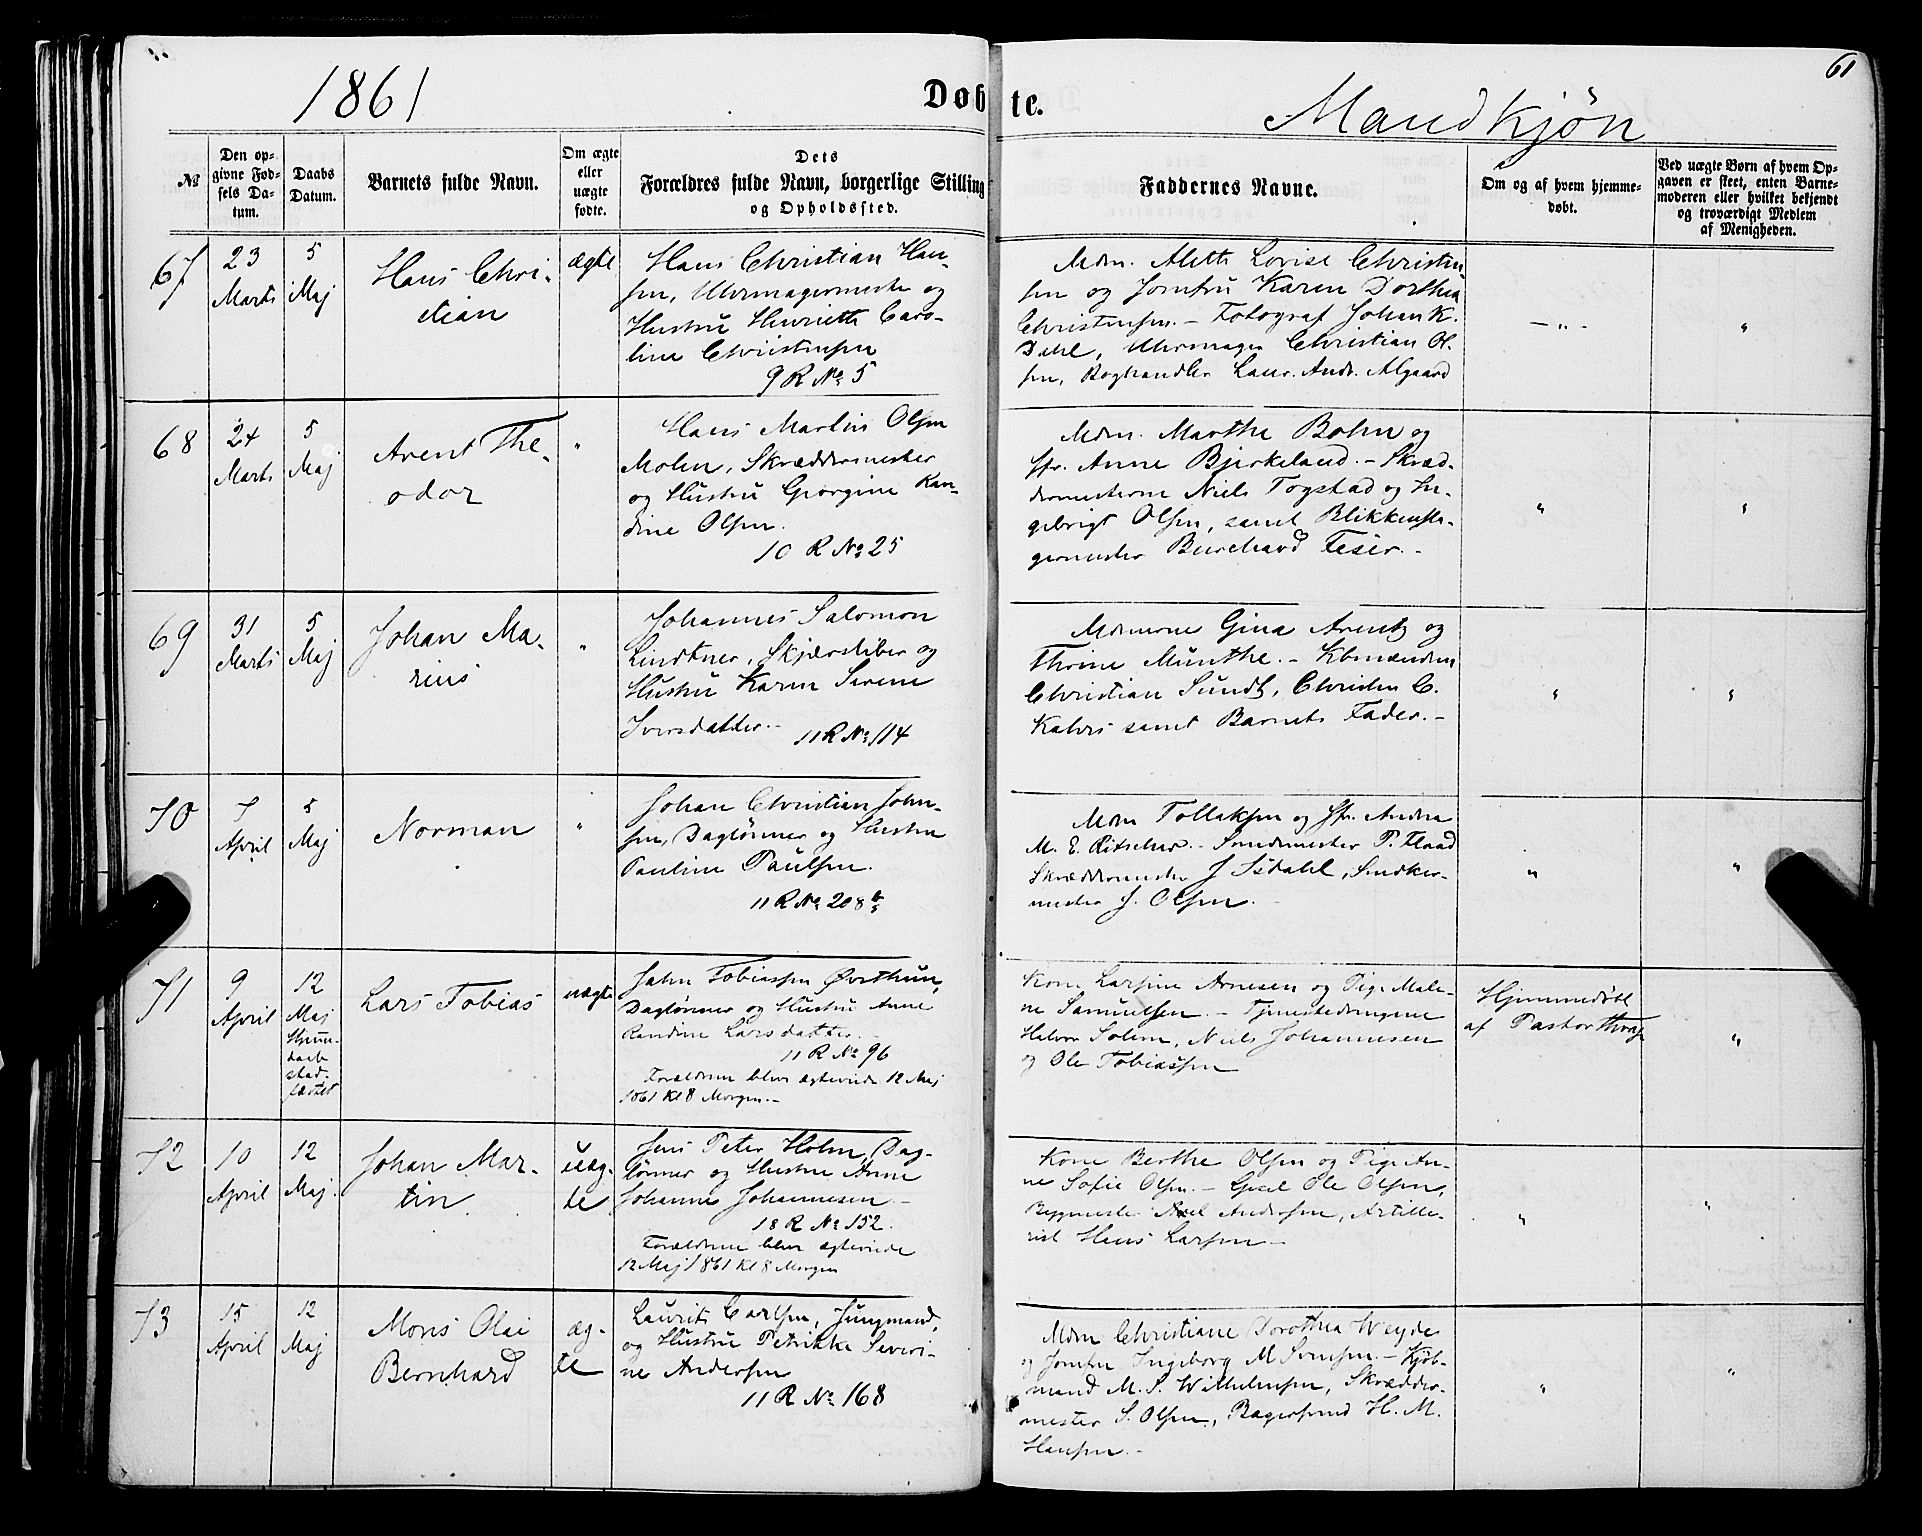 61
1861
Døbte.
Mandkjøn
№
Den op-
givne Fød-
sels Da-
tum.
Daabs
Datum.
Barnets fulde Navn.
Om ægte
eller
uægte
fødte.
Dets
Forældres fulde Navn, borgerlige Stilling
og Opholdssted.
Faddernes Navne.
Om og af hvem hjemme-
døbt.
Ved uægte Børn af hvem Op-
gaven er skeet, enten Barne-
moderen eller hvilket bekjendt
og troværdigt Medlem
af Menigheden.
67
23
Marts
5
Maj
Hans Chri-
stian
ægte
Hans Christian Han-
sen, Uhrmagermester og
Hustru Henriette Caro-
line Christensen
9 R No 5
Mdm. Alette Lovise Christen-
sen og Jomfru Karen Dorthea
Christensen. - Fotograf Johan K.
Dahl, Uhrmager Christian Ol-
sen, Boghandler Laur. Andr. Algaard
— „ -
"
68
24
Marts
5
Maj
Arent The-
odor
"
Hans Martin Olsen
Mohn, Skræddermester
og Hustru Georgine Ran-
dine Olsen.
10 R No 25
Mdm. Marthe Bohn og
Jfr. Anne Bjerkeland. - Skræd-
dermesterne Niels Togstad og In-
gebrigt Olsen, samt Blikkensla-
germester Burchard Feser. -
"
"
69
31
Marts
5
Maj
Johan Ma-
rius
"
Johannes Salomon
Lindtner, Skjærsliber og
Hustru Karen Serene
Iversdatter. -
11 R No 114
Mdmerne Gina Arentz og
Thrine Munthe. - Kbmændene
Christian Sundt, Christen C.
Kahrs samt Barnets Fader. -
"
"
70
7
April
5
Maj
Norman
"
Johan Christian John-
sen, Daglønner og Hustru
Pauline Paulsen.
11 R No 208 b
Mdm Tollaksen og Jfr. Andrea
M. E. Ritscher. - Smedemester P. Flaad
Skræddermester J Isdahl, Snedker-
mester J. Olsen. -
"
"
71
9
April
12
Maj
Hjemme-
daab
stad-
fæstet
Lars Tobias
uægte
John Tobiassen Øvrthun,
Daglønner og Hustru Anne
Randine Larsdatter. -
11 R No 96
Forældrene blev ægteviede 12 Maj
1861 Kl 8 Morgen. -
Kone Larsine Arnesen og Pige Male-
ne Samuelsen. - Tjenestedrengene
Halvor Solem, Niels Johannesen
og Ole Tobiassen
Hjemmedøbt
af Pastor
"
72
10
April
12
Maj.
Johan Mar-
tin.
uæg-
te
Jens Peter Holm, Dag-
lønner og Hustru Anne
Johanne Johannesen. -
18 R No 152.
Forældrene blev ægteviede
12 Maj 1861 Kl 8 Morgen
Kone Berthe Olsen og Pige An-
ne Sofie Olsen. - Gsel Ole Olsen,
Bygmester Axel Andersen, Artille-
rist Hans Larsen -
"
"
73
15
April
12
Maj
Mons Olai
Bernhard
æg-
te
Laurits Carlsen, Jungmand,
og Hustru Petrikke Severi-
ne Andersen
11 R No 168
Mdm Christiane Dorothea Weyde
og Jomfru Ingeborg M Svensen. - Kjøb-
mand M. S. Wilhelmsen, Skrædder-
mester S. Olsen, Bagersvend H. M.
Hansen. -
"
"